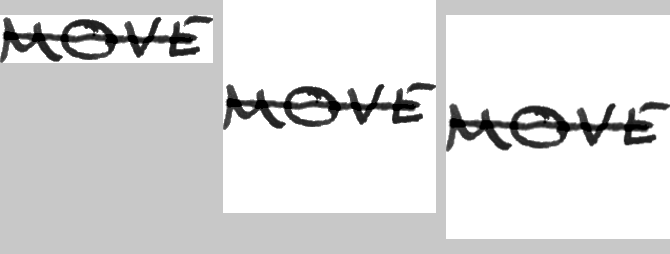 MOVE
MOVE
MOVE